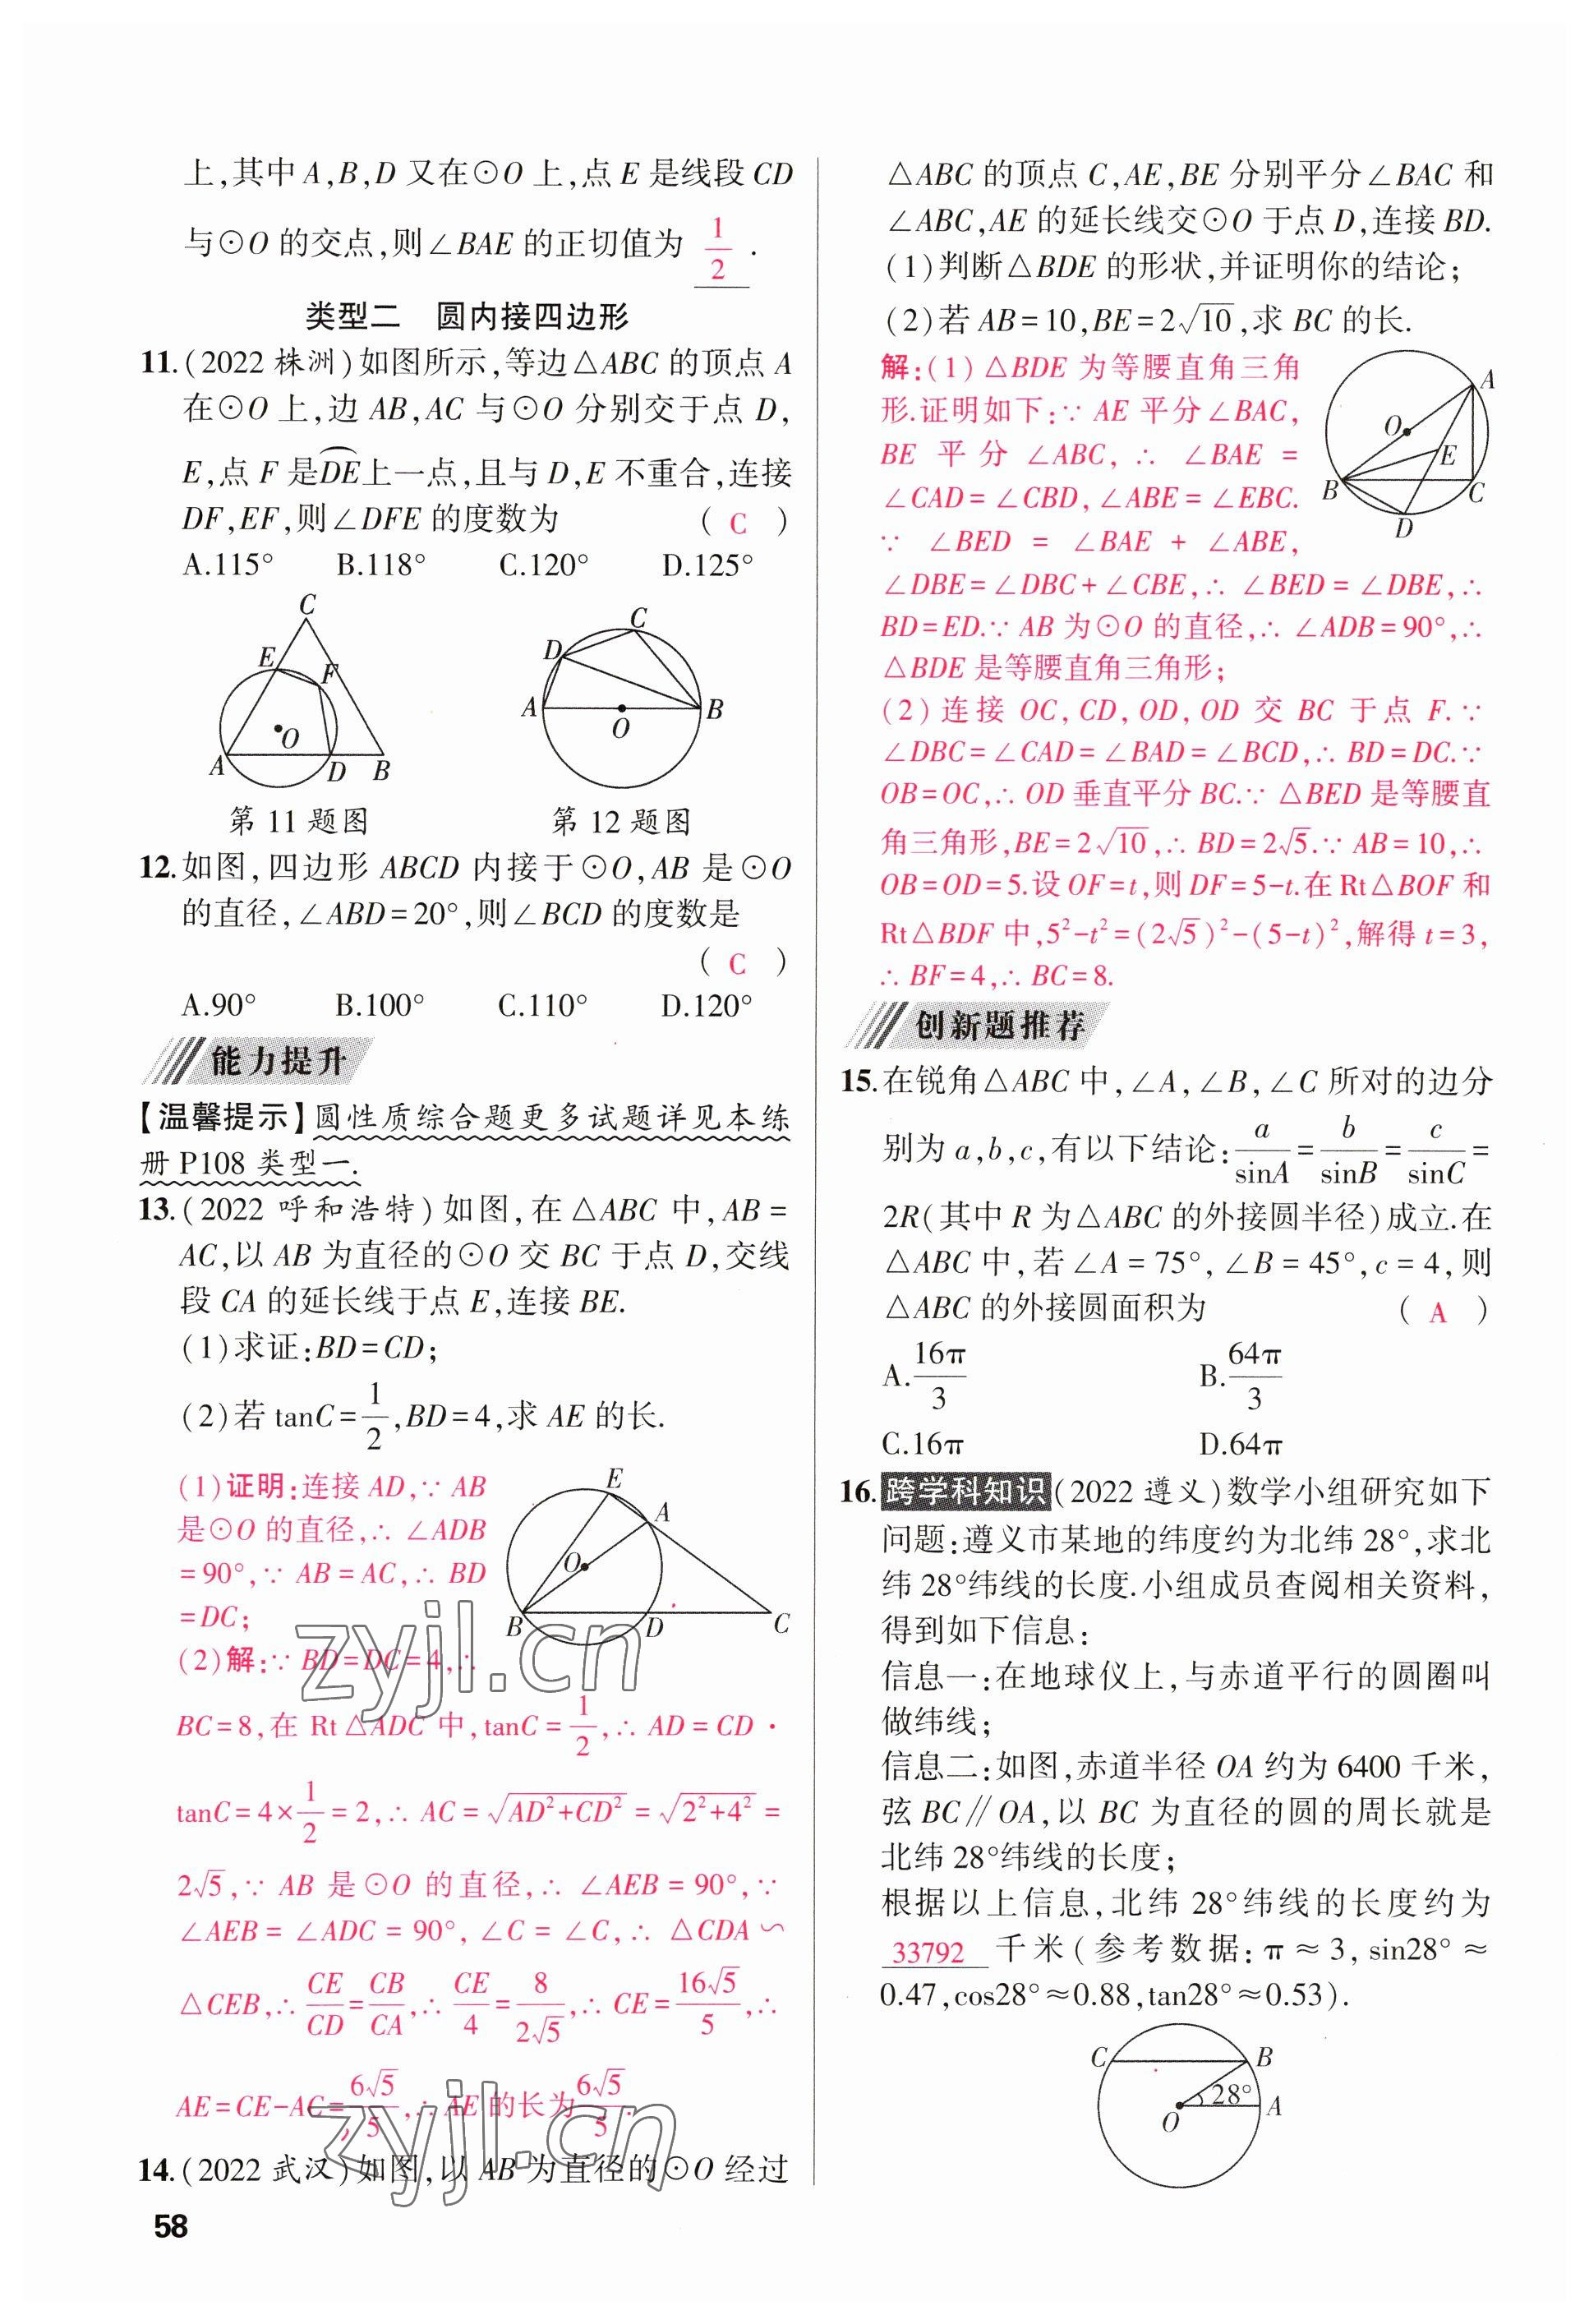 上,其中A,B,D又在⊙O上,点E是线段CD
与⊙O的交点,则∠BAE的正切值为 1/2 .
类型二 圆内接四边形
11.(2022株洲)如图所示,等边△ABC的顶点A
在⊙O上,边AB,AC与⊙O分别交于点D,
E,点F是DE⌒上一点,且与D,E不重合,连接
DF,EF,则∠DFE的度数为 ( C )
A.115° B.118° C.120° D.125°
C
E
F
O
A
D
B
第11题图
C
D
A
B
O
第12题图
12.如图,四边形ABCD内接于⊙O,AB是⊙O
的直径,∠ABD=20°,则∠BCD的度数是
( C )
A.90° B.100° C.110° D.120°
能力提升
【温馨提示】圆性质综合题更多试题详见本练
册P108类型一.
13.(2022呼和浩特)如图,在△ABC中,AB=
AC,以AB为直径的⊙O交BC于点D,交线
段CA的延长线于点E,连接BE.
(1)求证:BD=CD;
(2)若tanC=1/2,BD=4,求AE的长.
(1)证明:连接AD,∵AB
是⊙O的直径,∴∠ADB
=90°,∵AB=AC,∴BD
=DC;
(2)解:∵BD=DC=4,∴
E
A
O
B
D
C
BC=8,在Rt△ADC中,tanC=1/2,∴AD=CD·
tanC=4×1/2=2,∴AC=√(AD²+CD²)=√(2²+4²)=
2√5,∵AB是⊙O的直径,∴∠AEB=90°,∵
∠AEB=∠ADC=90°,∠C=∠C,∴△CDA∽
△CEB,∴CE/CD=CB/CA,∴CE/4=8/2√5,∴CE=16√5/5,∴
AE=CE-AC=6√5/5,∴AE的长为6√5/5.
14.(2022武汉)如图,以AB为直径的⊙O经过
58
△ABC的顶点C,AE,BE分别平分∠BAC和
∠ABC,AE的延长线交⊙O于点D,连接BD.
(1)判断△BDE的形状,并证明你的结论;
(2)若AB=10,BE=2√10,求BC的长.
解:(1)△BDE为等腰直角三角
形.证明如下:∵AE平分∠BAC,
BE平分∠ABC,∴∠BAE=
∠CAD=∠CBD,∠ABE=∠EBC.
∵∠BED=∠BAE+∠ABE,
A
O
E
B
C
D
∠DBE=∠DBC+∠CBE,∴∠BED=∠DBE,∴
BD=ED.∵AB为⊙O的直径,∴∠ADB=90°,∴
△BDE是等腰直角三角形;
(2)连接OC,CD,OD,OD交BC于点F.∵
∠DBC=∠CAD=∠BAD=∠BCD,∴BD=DC.∵
OB=OC,∴OD垂直平分BC.∵△BED是等腰直
角三角形,BE=2√10,∴BD=2√5.∵AB=10,∴
OB=OD=5.设OF=t,则DF=5-t.在Rt△BOF和
Rt△BDF中,5²-t²=(2√5)²-(5-t)²,解得t=3,
∴BF=4,∴BC=8.
创新题推荐
15.在锐角△ABC中,∠A,∠B,∠C所对的边分
别为a,b,c,有以下结论:a/sinA=b/sinB=c/sinC=
2R(其中R为△ABC的外接圆半径)成立.在
△ABC中,若∠A=75°,∠B=45°,c=4,则
△ABC的外接圆面积为 ( A )
A.16π/3 B.64π/3
C.16π D.64π
16.跨学科知识(2022遵义)数学小组研究如下
问题:遵义市某地的纬度约为北纬28°,求北
纬28°纬线的长度.小组成员查阅相关资料,
得到如下信息:
信息一:在地球仪上,与赤道平行的圆圈叫
做纬线;
信息二:如图,赤道半径OA约为6400千米,
弦BC∥OA,以BC为直径的圆的周长就是
北纬28°纬线的长度;
根据以上信息,北纬28°纬线的长度约为
33792 千米(参考数据:π≈3,sin28°≈
0.47,cos28°≈0.88,tan28°≈0.53).
C
B
28°
O
A
zyjl.cn
zyjl.cn